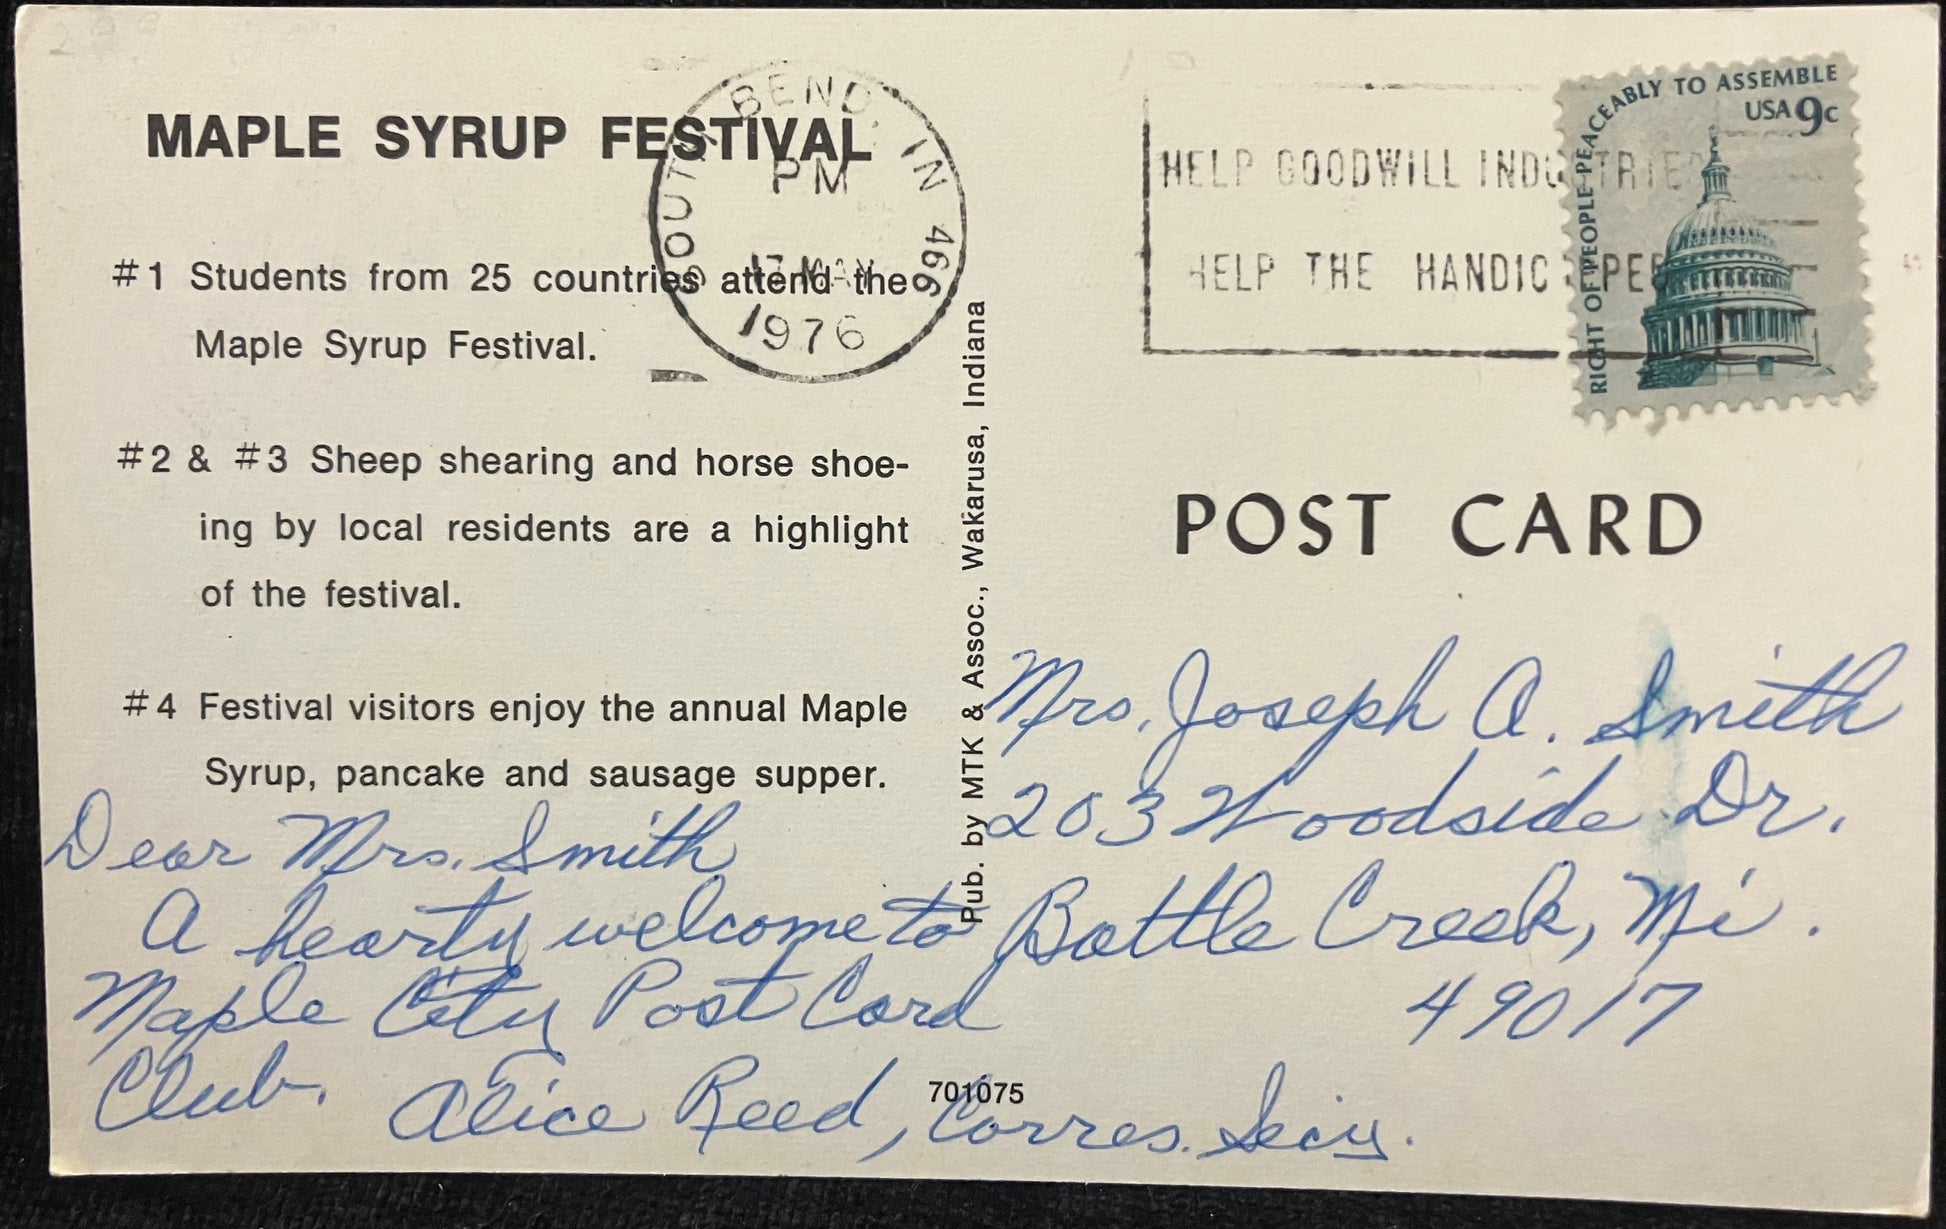 MAPLE SYRUP FESTIVAL
#1 Students from 25 countries attend the
Maple Syrup Festival.
#2 & #3 Sheep shearing and horse shoe-
ing by local residents are a highlight
of the festival.
#4 Festival visitors enjoy the annual Maple
Syrup, pancake and sausage supper.
Dear Mrs. Smith
A hearty welcome to
Maple City Post Card
Club.
Alice Reed, Corres. Secy.
701075
Pub. by MTK & Assoc., Wakarusa, Indiana
SOUTH BEND, IN 466
PM
17 MAY
1976
HELP GOODWILL INDUSTRIES
HELP THE HANDICAPPED
RIGHT OF PEOPLE PEACEABLY TO ASSEMBLE
USA 9c
POST CARD
Mrs. Joseph A. Smith
203 Woodside Dr.
Battle Creek, Mi.
49017